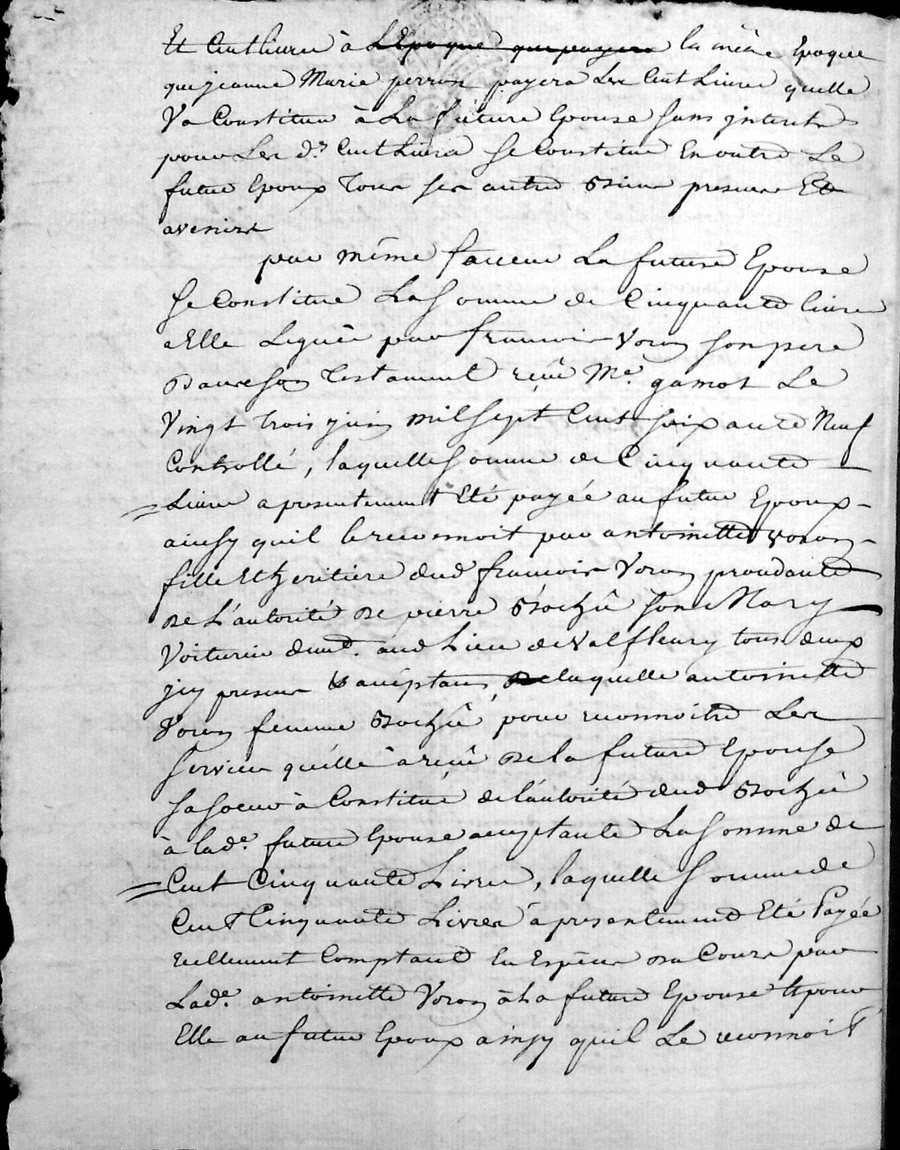 Et Cent livres à L'Epoque que payera la même Epoque
que jeanne Marie perron payera Les Cent Livres quelle
Va Constituer à La future Epouse sans jnterets
pour Les d.s Cent Livres Se Constitue En outre Le
futur Epoux Tous ses autres Biens presens Et
avenirs
par même faveur La future Epouse
Se Constitue La Somme de Cinquante livres
a Elle Leguée par francois Voron son pere
Dans son Testament reçu M.e gamot Le
Vingt Trois juin mil sept Cent Soixante Neuf
Controllé, laquelle Somme de Cinquante
Livres a presentement Eté payée au futur Epoux
ainsy quil le reconnoit par antoinette voron
fille Et heritiere dud francois Voron procedante
De L'autorité De pierre son Mary
Voiturier dem.t aud Lieu de Valfleury tous deux
jcy presens & aceptans, De laquelle antoinette
Voron femme pour reconnoitre Les
Services quelle à reçu De la future Epouse
Sa Soeur à Constitué de l'autorité dud
à lad.e future Epouse aceptante La Somme de
Cent Cinquante Livres, laquelle Somme de
Cent Cinquante Livres à presentement Eté Payée
reellement Comptant En Especes Du Cours par
Lad.e antoinette Voron à La future Epouse Et pour
Elle au futur Epoux ainsy quil Le reconnoit